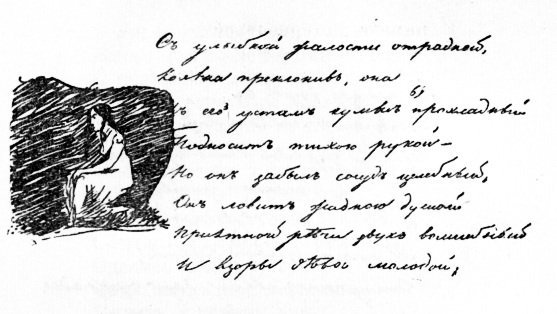 Съ улыбкой жалости отрадной,
Колѣна преклонивъ, она
Къ его устамъ кумысъ 5) прохладный
Подноситъ тихою рукой —
Но онъ забылъ сосудъ цѣлебный,
Онъ ловитъ жадною душой
Пріятной рѣчи звукъ волшебный
И взоры дѣвы молодой;